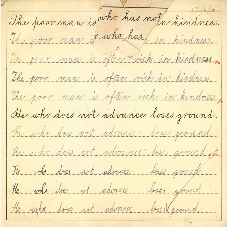 The poor man is who has not in kindness.
The poor man is who has in kindness.
The poor man is often rich in kindness
The poor man is often rich in kindness.
The poor man is often rich in kindness.
He who does not advance loses ground.
He who does not advance loses ground.
He who does not advance loses ground
He who does not advance loses ground.
He who does not advance loses ground
He who does not advance loses ground.